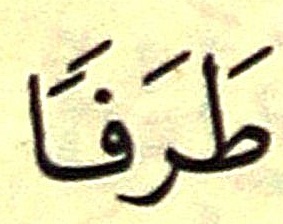 طَرَفًا